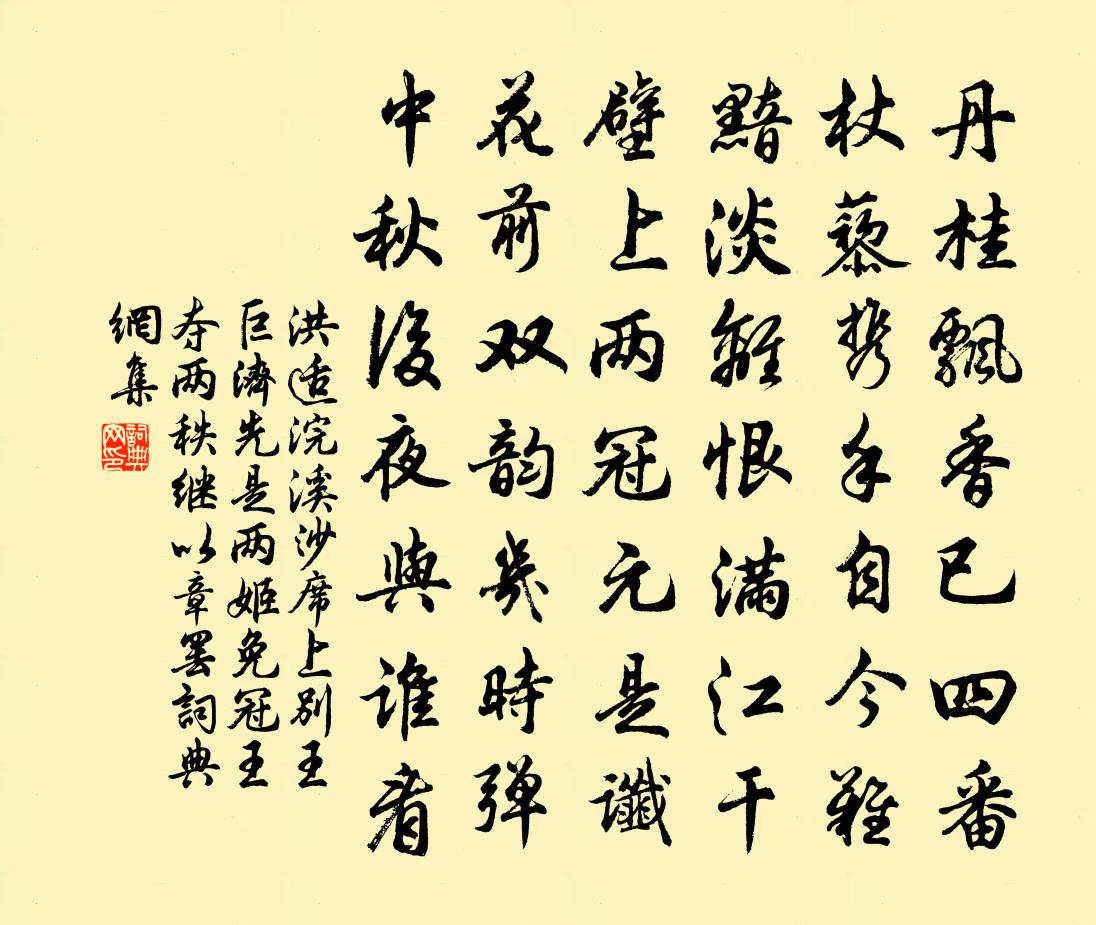 丹桂飄香已四番
杖藜携手自今難
黯淡離恨滿江干
壁上两冠元是讖
花前双韵幾時弹
中秋後夜與誰看
洪适浣溪沙席上别王
巨濟先是两姬免冠王
夺两秩继以章罢詞典
網集
詞典
网印